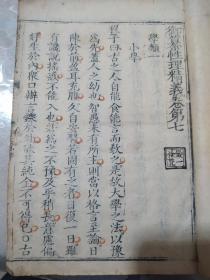 御纂性理精義卷第七
學類一
小學
程子曰古之人自能食能言而教之是故大學之法以豫
為先蓋人之幼也知思未有所主則當以格言至論日
陳於前盈耳充腹久自安習若固有之者日復一日雖
有讒說搖惑不能入也若為之不豫及乎稍長意慮偏
好生於內眾口辯言鑠於外欲其純全不可得也○古